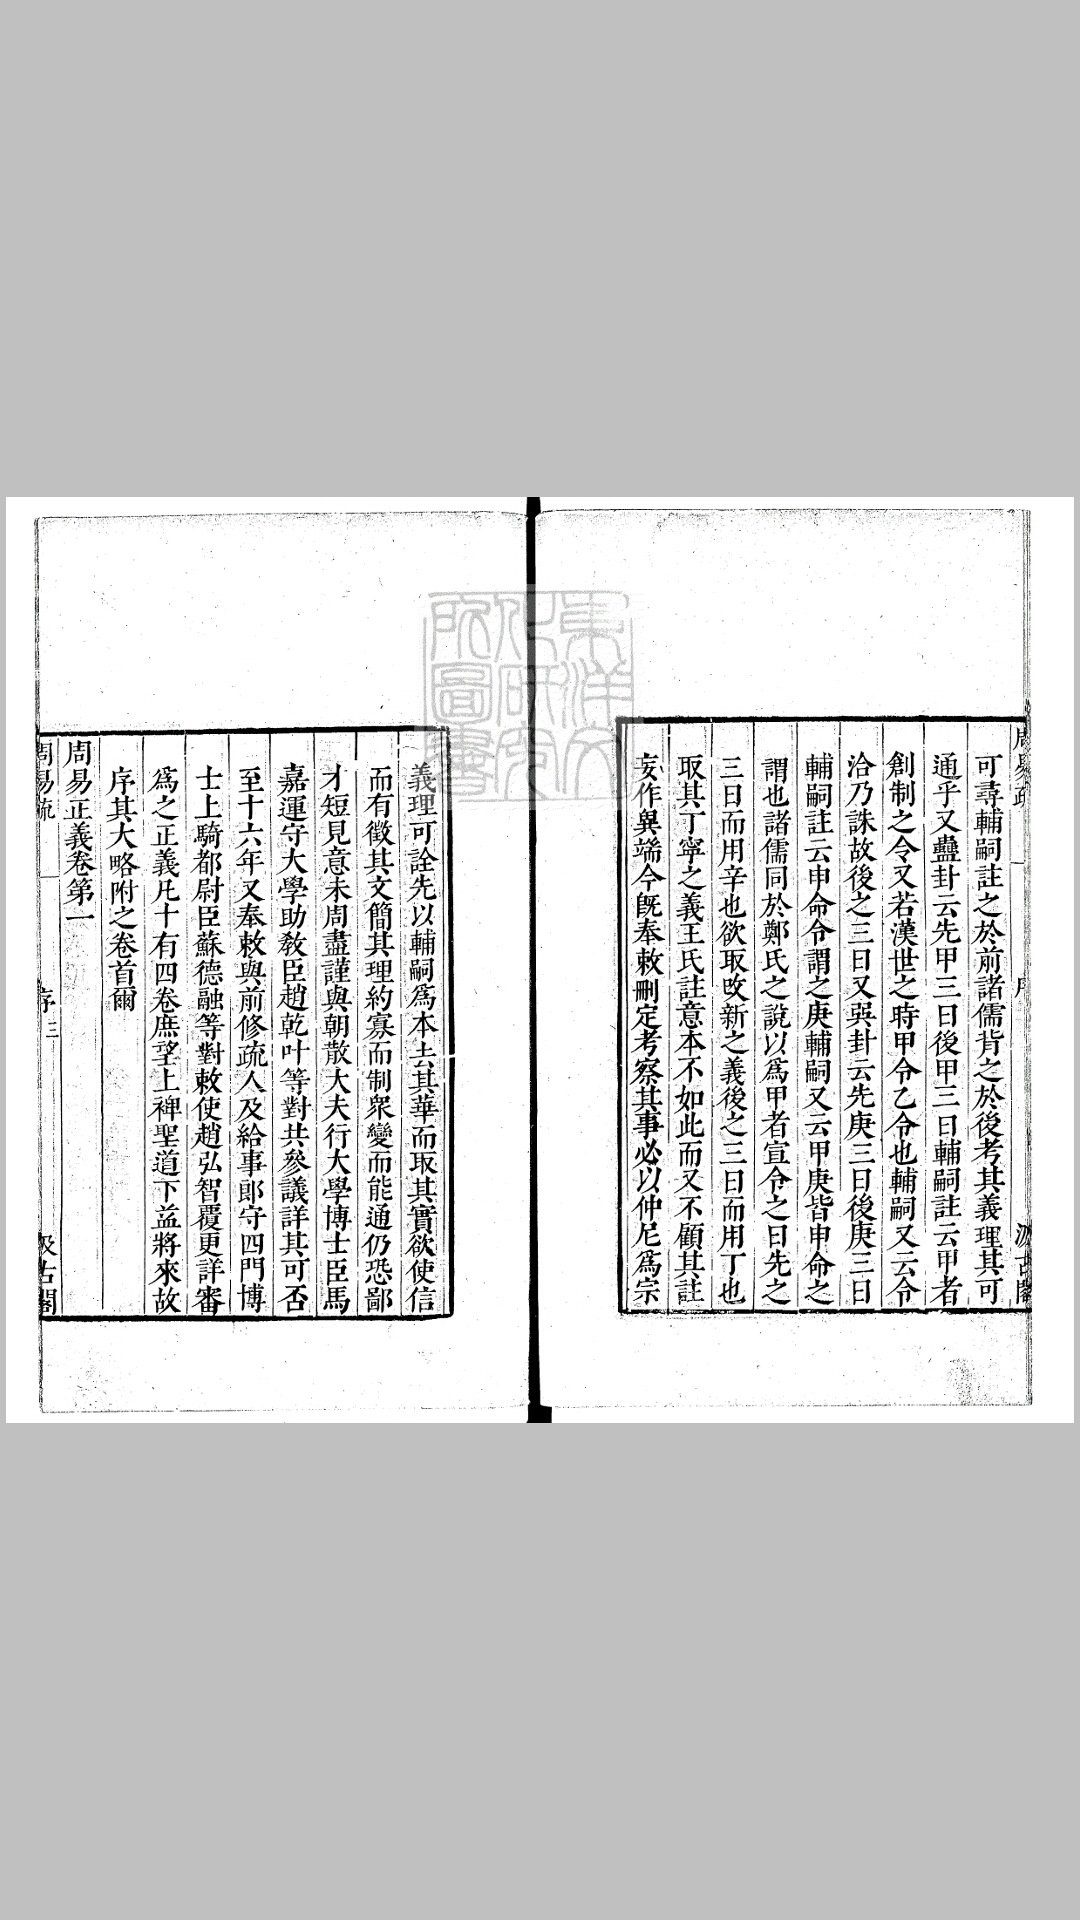 可尋輔嗣註之於前諸儒背之於後考其義理其可
通乎又蠱卦云先甲三日後甲三日輔嗣註云甲者
創制之令又若漢世之時甲令乙令也輔嗣又云令
洽乃誅故後之三日又巽卦云先庚三日後庚三日
輔嗣註云申命令謂之庚輔嗣又云甲庚皆申命之
謂也諸儒同於鄭氏之說以爲甲者宣令之日先之
三日而用辛也欲取改新之義後之三日而用丁也
取其丁寧之義王氏註意本不如此而又不顧其註
妄作異端今旣奉敕刪定考察其事必以仲尼爲宗
義理可詮先以輔嗣爲本去其華而取其實欲使信
而有徵其文簡其理約寡而制衆變而能通仍恐鄙
才短見意未周盡謹與朝散大夫行大學博士臣馬
嘉運守大學助敎臣趙乾叶等對共參議詳其可否
至十六年又奉敕與前修疏人及給事郎守四門博
士上騎都尉臣蘇德融等對敕使趙弘智覆更詳審
爲之正義凡十有四卷庶望上裨聖道下益將來故
序其大略附之卷首爾
周易正義卷第一
周易疏 一 序 三 汲古閣
東洋文化研究所圖書